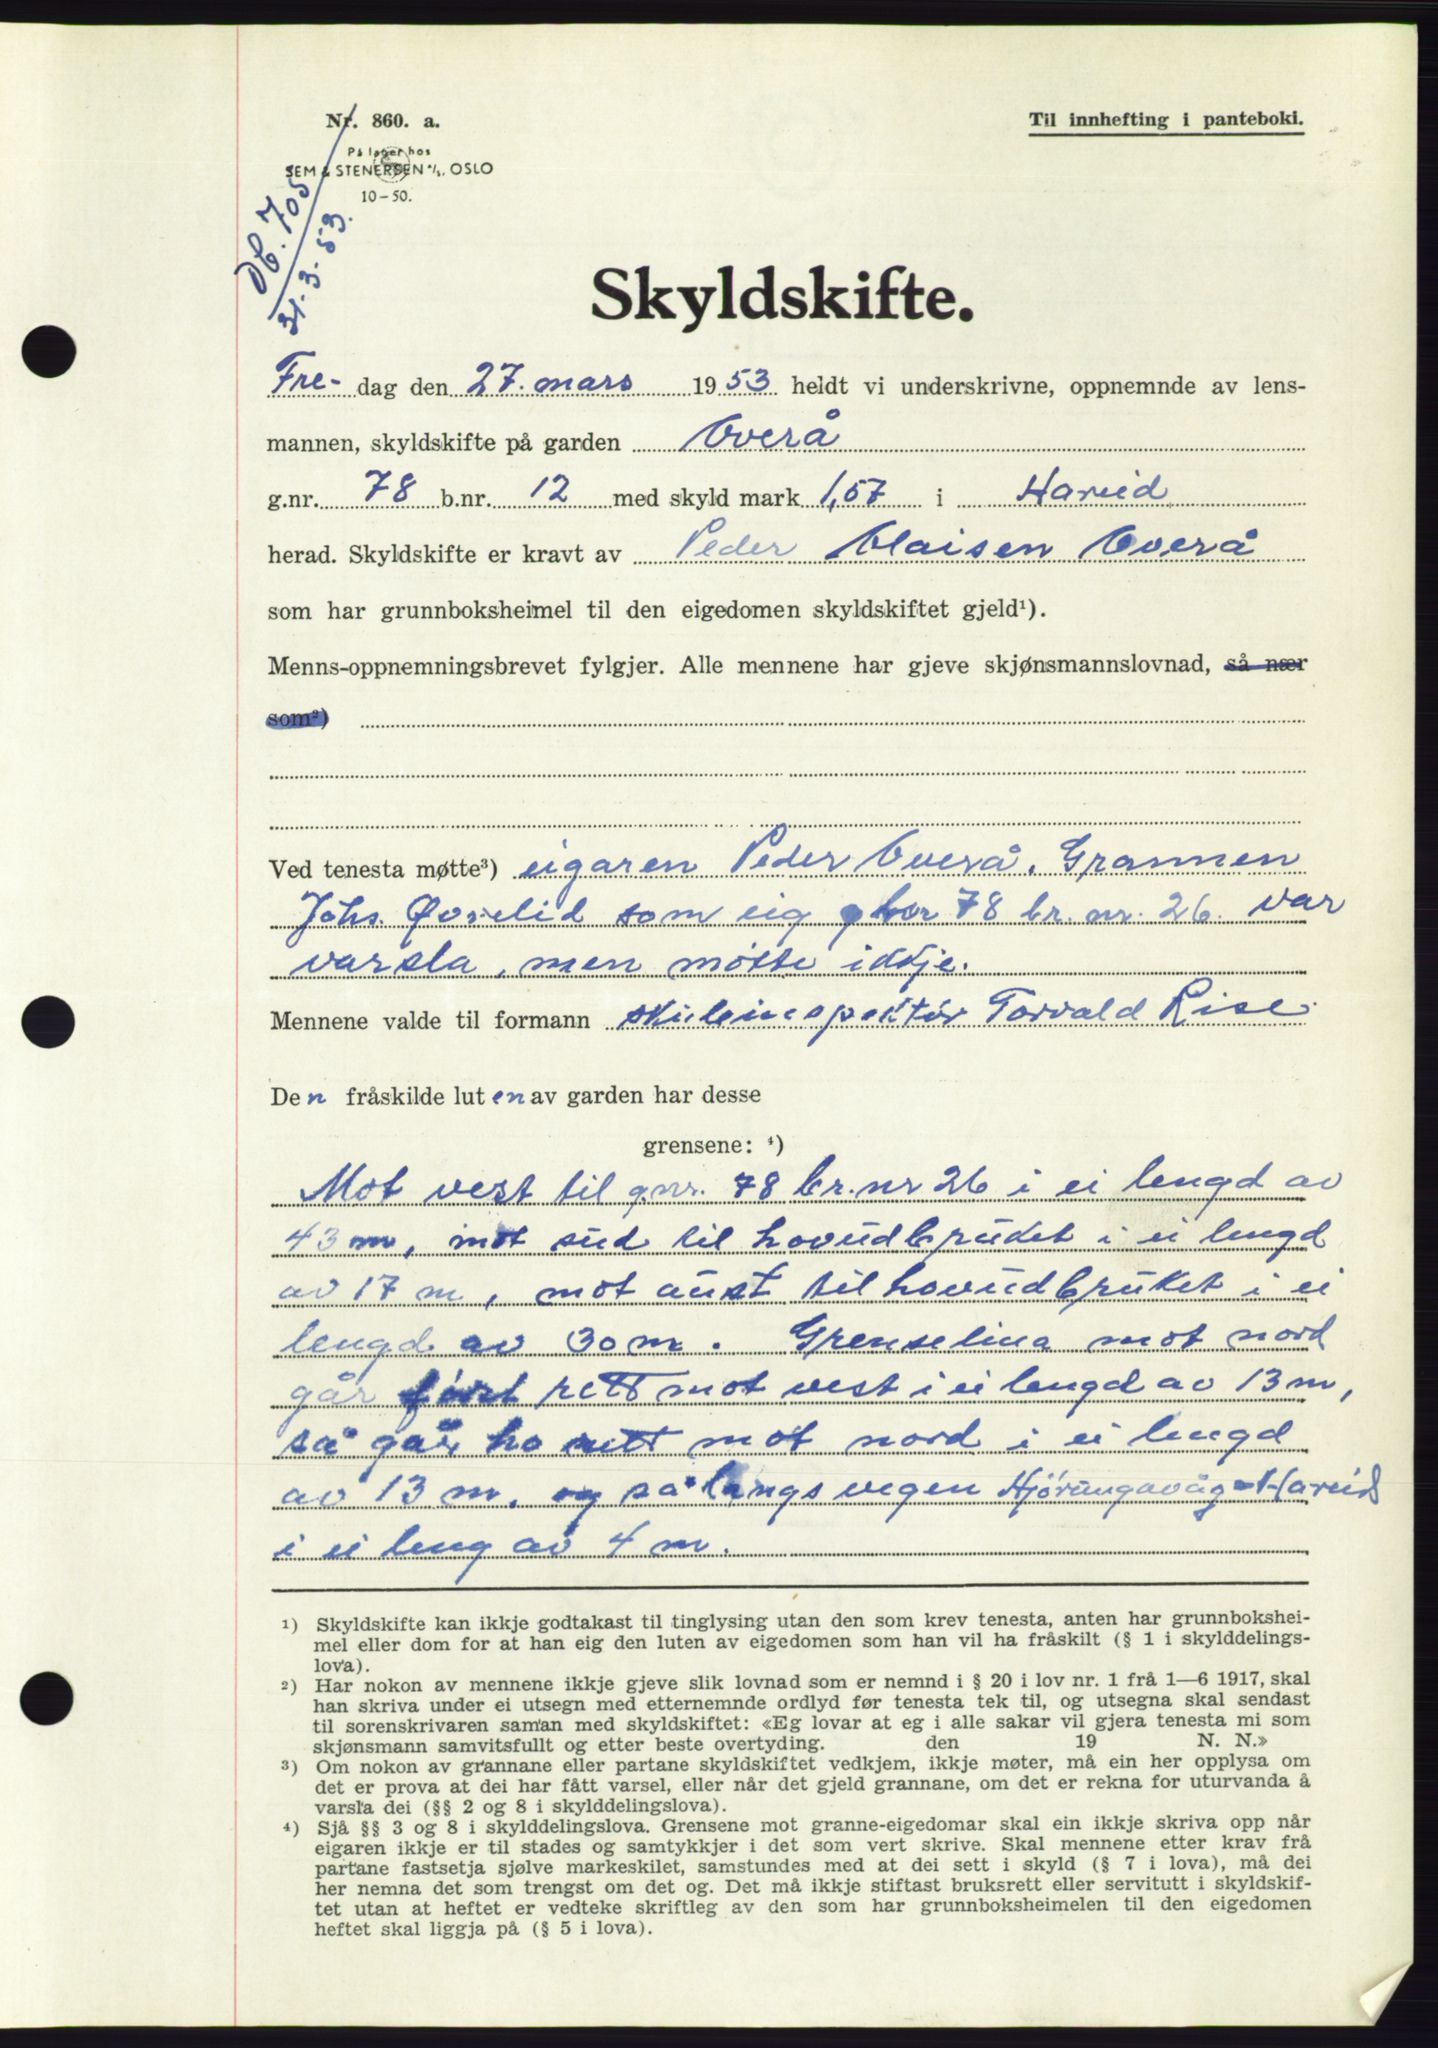 Nr. 860. a.
Til innhefting i panteboki.
På lager hos
SEM & STENERSEN A/S, OSLO
10-50.
Db. 705
31-3-53.
Skyldskifte.
Fre- dag den 27. mars 1953 heldt vi underskrivne, oppnemnde av lens-
mannen, skyldskifte på garden Overå
g.nr. 78 b.nr. 12 med skyld mark 1,57 i Hareid
herad. Skyldskifte er kravt av Peder Claisen Overå
som har grunnboksheimel til den eigedomen skyldskiftet gjeld¹).
Menns-oppnemningsbrevet fylgjer. Alle mennene har gjeve skjønsmannslovnad, så nær
som²)
Ved tenesta møtte³) eigaren Peder Overå. Grannen
Johs. Øvrelid som eig 78 br. nr. 26. var
varsla, men møtte ikkje.
Mennene valde til formann skuleinspektör Torvald Rise
Den fråskilde luten av garden har desse
grensene: ⁴)
Mot vest til g.nr. 78 br.nr 26 i ei lengd av
43 m, mot sud til hovudbruket i ei lengd
av 17 m, mot aust til hovudbruket i ei
lengd av 30 m. Grenselina mot nord
går først rett mot vest i ei lengd av 13 m,
så går ho rett mot nord i ei lengd
av 13 m. og så langs vegen Hjörungavåg-Hareid
i ei leng av 4 m.
¹) Skyldskifte kan ikkje godtakast til tinglysing utan den som krev tenesta, anten har grunnbokshei-
mel eller dom for at han eig den luten av eigedomen som han vil ha fråskilt (§ 1 i skylddelings-
lova).
²) Har nokon av mennene ikkje gjeve slik lovnad som er nemnd i § 20 i lov nr. 1 frå 1—6 1917, skal
han skriva under ei utsegn med etternemnde ordlyd før tenesta tek til, og utsegna skal sendast
til sorenskrivaren saman med skyldskiftet: «Eg lovar at eg i alle sakar vil gjera tenesta mi som
skjønsmann samvitsfullt og etter beste overtyding. den 19 N. N.»
³) Om nokon av grannane eller partane skyldskiftet vedkjem, ikkje møter, må ein her opplysa om
det er prova at dei har fått varsel, eller når det gjeld grannane, om det er rekna for uturvanda å
varsla dei (§§ 2 og 8 i skylddelingslova).
⁴) Sjå §§ 3 og 8 i skylddelingslova. Grensene mot granne-eigedomar skal ein ikkje skriva opp når
eigaren ikkje er til stades og samtykkjer i det som vert skrive. Skal mennene etter krav frå
partane fastsetja sjølve markeskilet, samstundes med at dei sett i skyld (§ 7 i lova), må dei
her nemna det som trengst om det og. Det må ikkje stiftast bruksrett eller servitutt i skyldskif-
tet utan at heftet er vedteke skriftleg av den som har grunnboksheimelen til den eigedomen
heftet skal liggja på (§ 5 i lova).